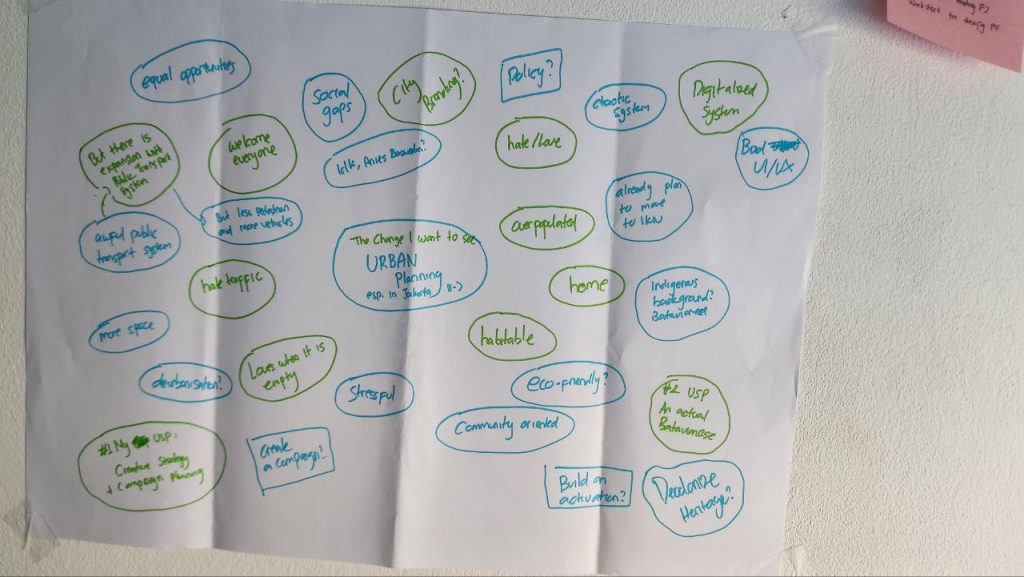 equal opportunities
Social
gaps
City
Branding?
Policy?
chaotic
system
Digitalized
System
Bad
UI/UX
But there is
expansion with
Public Transport
System
welcome
everyone
hate/Love
already plan
to move
to IKN
awful public
transport system
But less Pedestrian
and more vehicles
The Change I want to see
URBAN
Planning
esp. in Jakarta B-)
overpopulated
hate traffic
home
Indigenous
background?
Batavianese
more space
habitable
deurbanisation?
Loves when it is
empty
Stressful
eco-friendly?
#2 USP
An actual
Batavianese
#1 My USP:
Creative Strategy
+ Campaign Planning
Create
a campaign?
Community oriented
Build an
activation?
Decolonize
Heritage?